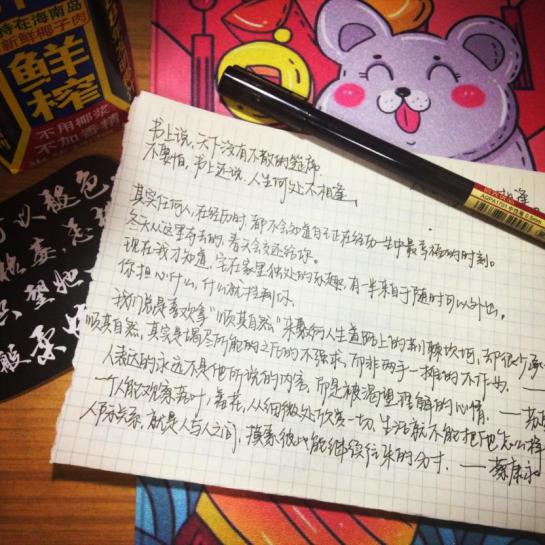 特在海南岛
新鲜椰子肉
鲜
榨
不用椰浆
不加香精
书上说,天下没有不散的筵席.
不要怕,书上还说,人生何处不相逢.
其实任何人,在经历时都不会知道自己正在经历一生中最幸福的时刻。
冬天从这里夺去的,春天会交还给你。
现在我才知道,宅在家里独处的乐趣,有一半来自于随时可以外出。
你担心什么,什么就控制你.
我们总是喜欢拿"顺其自然"来敷衍人生道路上的荆棘坎坷,却很少承
顺其自然,其实是竭尽所能的之后的不强求,而非两手一摊的不作为.
人表达的永远不是他所说的内容,而是被渴望理解的心情.
一个人能观察落叶、羞花,从细微处欣赏一切,生活就不能把他怎么样
人际关系,就是人与人之间,摸索彼此能继续往来的分寸.——蔡康永